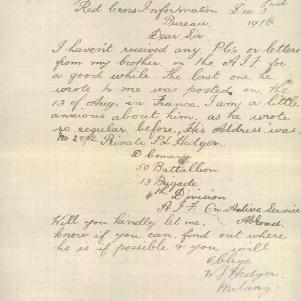 Red Cross Information Dec 3
Bureau. 1916
Dear Sir
I haven't received any P.Cs or letters
from my brother in the A I F for
a good while. The last one he
wrote to me was posted on the
13 of Aug. in France. I am a little
anxious about him, as he wrote
so regular before, His Address was.
Private P L Hedger.
D Comany
50 Battallion
13 Brigade
4th Division
A I F On Active Service
Abroad.
Will you kindly let me.
know if you can find out where
he is if possible & you will
Oblige
W J Hedger